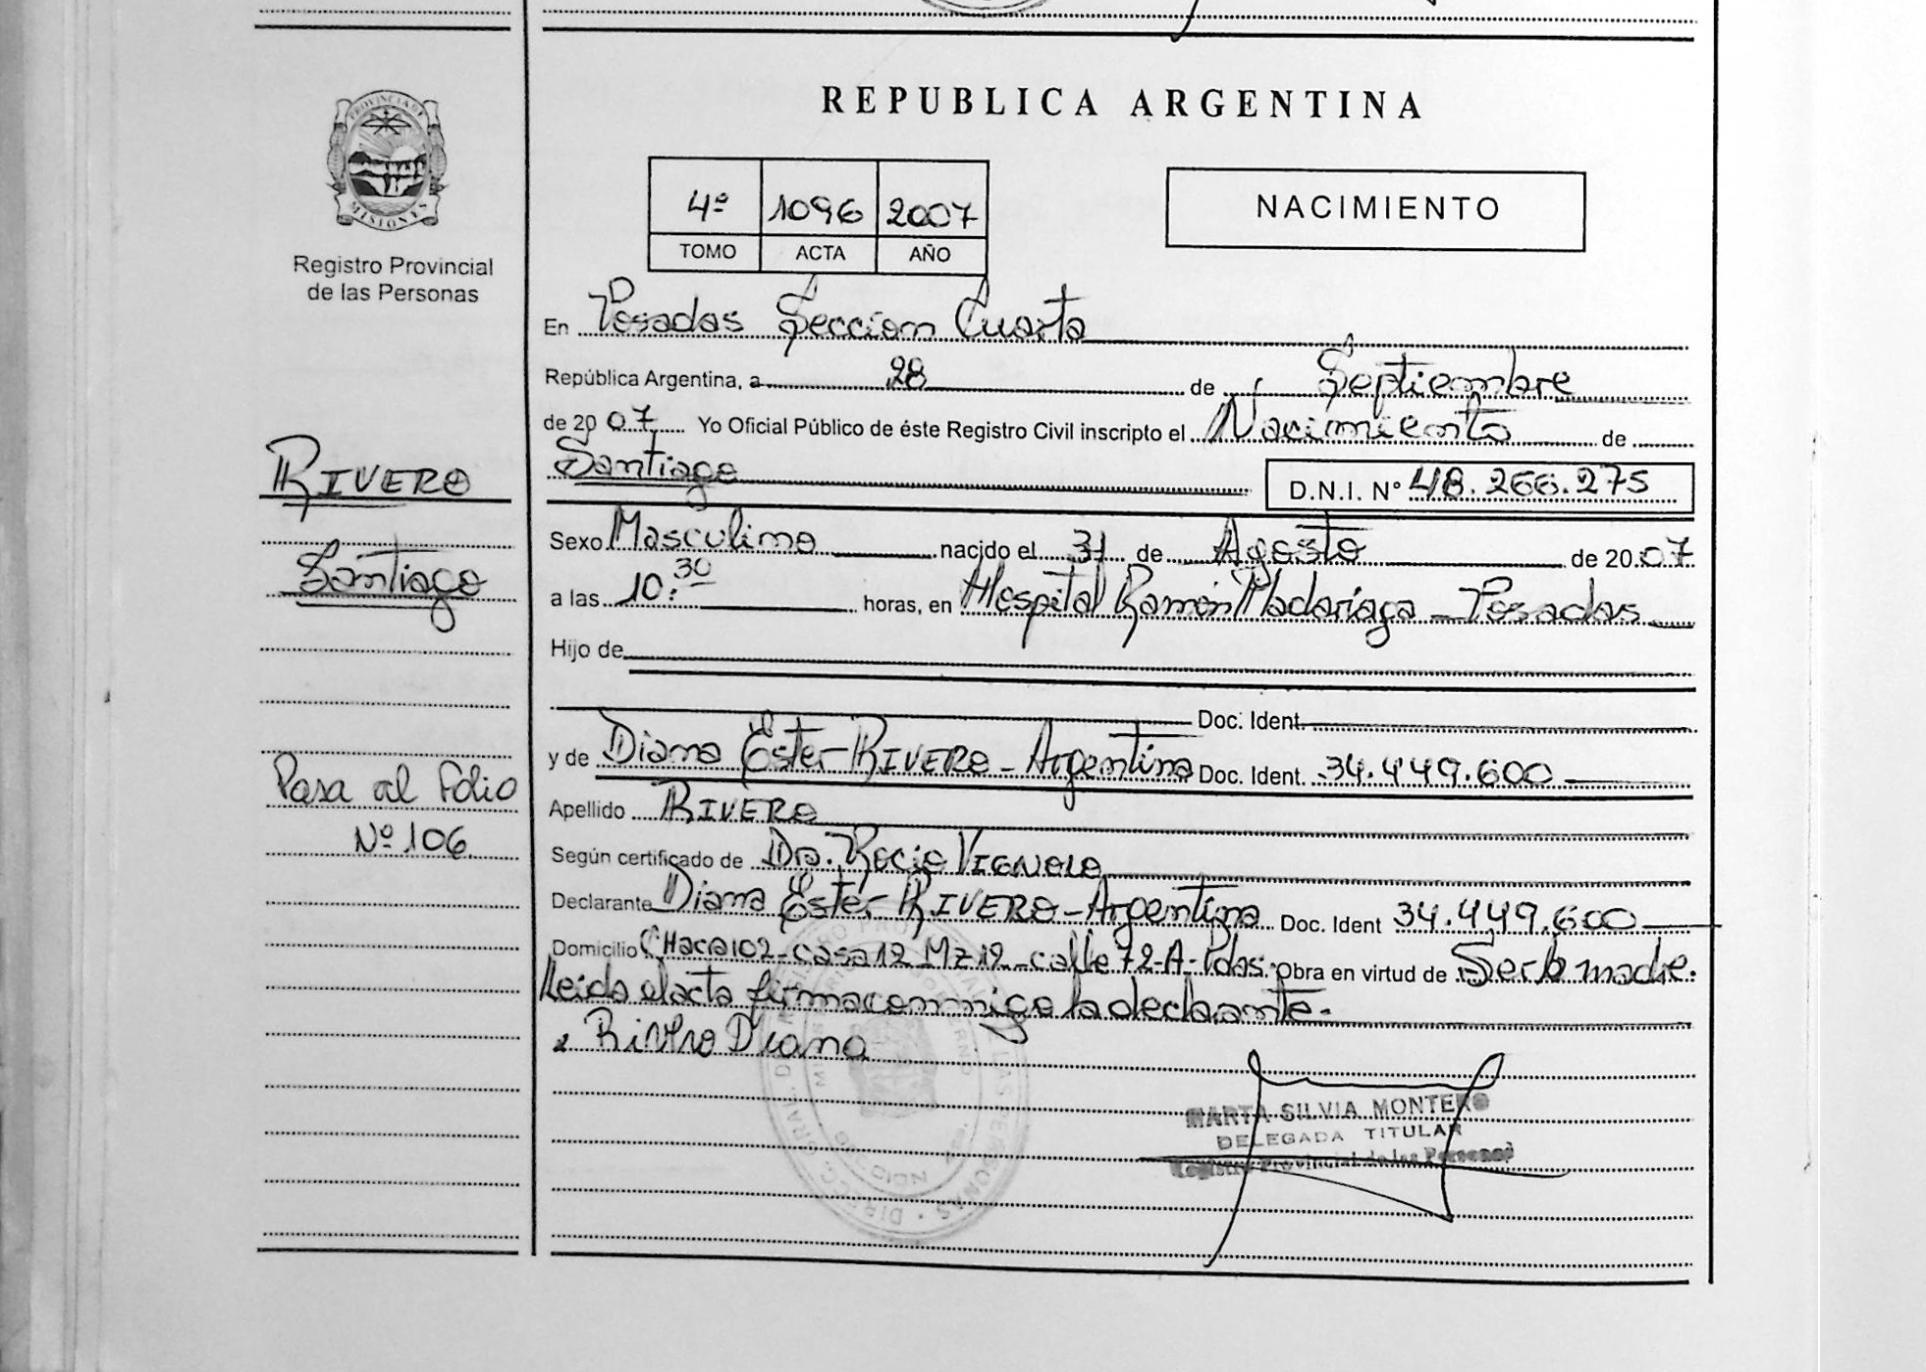 PROVINCIA DE
MISIONES
Registro Provincial
de las Personas
RIVERO
Santiago
Pasa al Folio
Nº 106
REPUBLICA ARGENTINA
4º 1096 2007
TOMO ACTA AÑO
NACIMIENTO
En Posadas Sección Cuarta
República Argentina, a 28 de Septiembre
de 2007 Yo Oficial Público de éste Registro Civil inscripto el Nacimiento de
Santiago D.N.I. Nº 48.266.275
Sexo Masculino nacido el 31 de Agosto de 2007
a las 10:30 horas, en Hospital Ramón Madariaga - Posadas
Hijo de
Doc. Ident.
y de Diana Ester RIVERO - Argentina Doc. Ident. 34.449.600
Apellido RIVERO
Según certificado de Dra. Rocio VIGNOLO
Declarante Diana Ester RIVERO - Argentina Doc. Ident 34.449.600
Domicilio CHaca 102 - casa 12 Mz 12 - calle 72-A - Pdas. Obra en virtud de Ser la madre.
Leida el acta firma conmigo la declarante.
Rivero Diana
MARTA SILVIA MONTERO
DELEGADA TITULAR
Registro Provincial de las Personas